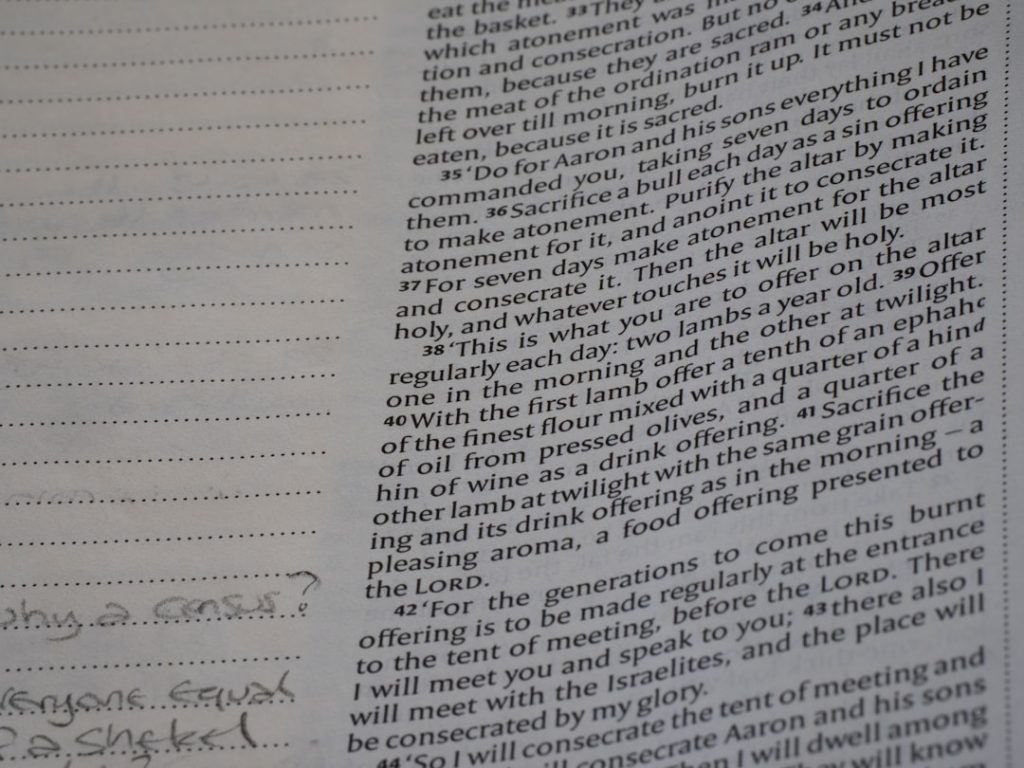 eat the
the basket. 33They
which atonement was
tion and consecration. But no
them, because they are sacred. 34And
the meat of the ordination ram or any
left over till morning, burn it up. It must not be
eaten, because it is sacred.
35‘Do for Aaron and his sons everything I have
commanded you, taking seven days to ordain
them. 36Sacrifice a bull each day as a sin offering
to make atonement. Purify the altar by making
atonement for it, and anoint it to consecrate it.
37For seven days make atonement for the altar
and consecrate it. Then the altar will be most
holy, and whatever touches it will be holy.
38‘This is what you are to offer on the altar
regularly each day: two lambs a year old. 39Offer
one in the morning and the other at twilight.
40With the first lamb offer a tenth of an ephahc
of the finest flour mixed with a quarter of a hind
of oil from pressed olives, and a quarter of a
hin of wine as a drink offering. 41Sacrifice the
other lamb at twilight with the same grain offer-
ing and its drink offering as in the morning – a
pleasing aroma, a food offering presented to
the LORD.
42‘For the generations to come this burnt
offering is to be made regularly at the entrance
to the tent of meeting, before the LORD. There
I will meet you and speak to you; 43there also I
will meet with the Israelites, and the place will
be consecrated by my glory.
44‘So I will consecrate the tent of meeting and
consecrate Aaron and his sons
I will dwell among
will know
why a census?
everyone equal
a shekel